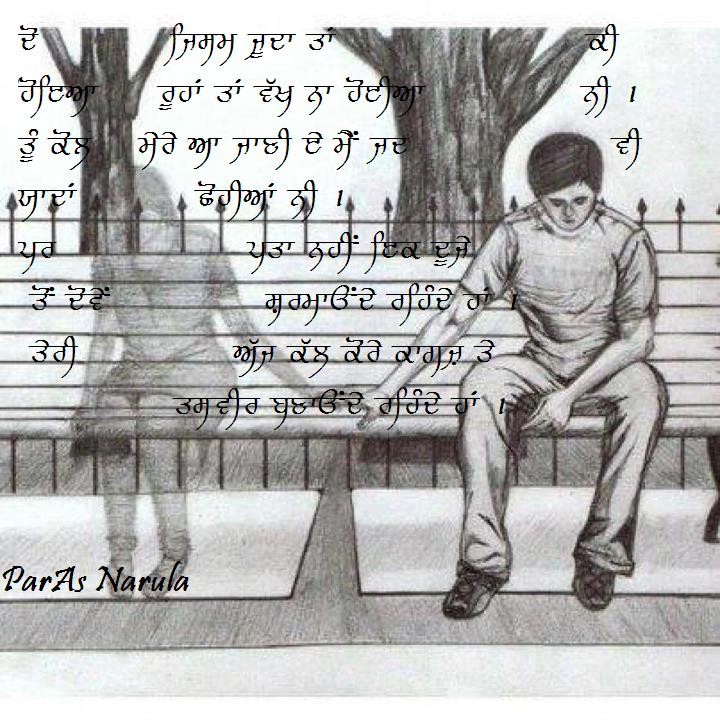 ਦੋ ਜਿਸਮ ਜੂਦਾ ਤਾਂ ਕੀ
ਹੋਇਆ ਰੂਹਾਂ ਤਾਂ ਵੱਖ ਨਾ ਹੋਈਆ ਨੀ ।
ਤੂੰ ਕੋਲ ਮੇਰੇ ਆ ਜਾਣੀ ਏ ਮੈਂ ਜਦ ਵੀ
ਯਾਦਾਂ ਛੋਹੀਆਂ ਨੀ ।
ਪਰ ਪਤਾ ਨਹੀਂ ਇਕ ਦੂਜੇ
ਤੋਂ ਦੋਵੇਂ ਸ਼ਰਮਾਓਂਦੇ ਰਹਿੰਦੇ ਹਾਂ ।
ਤੇਰੀ ਅੱਜ ਕੱਲ ਕੋਰੇ ਕਾਗਜ਼ ਤੇ
ਤਸਵੀਰ ਬਣਾਓਂਦੇ ਰਹਿੰਦੇ ਹਾਂ ।
ParAs Narula